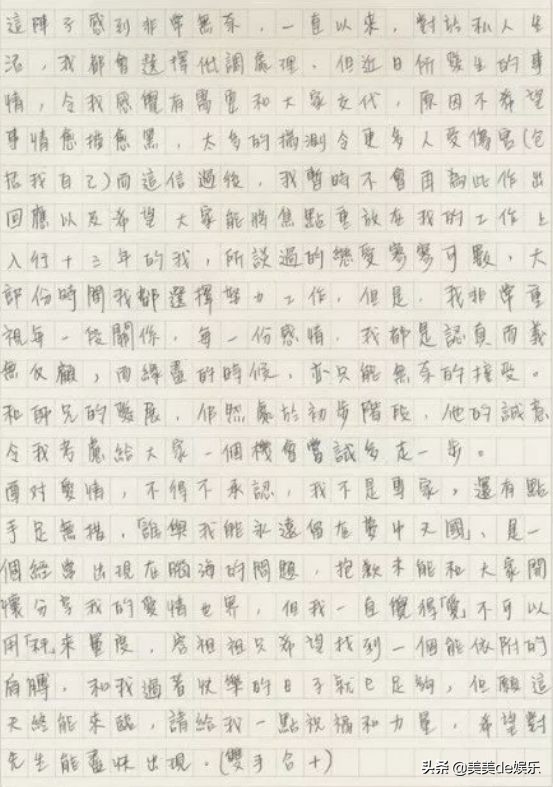 這陣子感到非常無奈，一直以來，對於私人生
活，我都會選擇低調處理，但近日所發生的事
情，令我感覺有需要和大家交代，原因不希望
事情愈描愈黑，太多的揣測令更多人受傷害(包
括我自己)而這信過後，我暫時不會再為此作出
回應以及希望大家能將焦點重放在我的工作上
入行十三年的我，所談過的戀愛寥寥可數，大
部份時間我都選擇努力工作，但是，我非常重
視每一段關係，每一份感情，我都是認真而義
無反顧，而緣盡的時候，亦只能無奈的接受。
和師兄的發展，仍然處於初步階段，他的誠意
令我考慮給大家一個機會嘗試多走一步。
面對愛情，不得不承認，我不是專家，還有點
手足無措，「誰與我能永遠留在夢中天國」，是一
個經常出現在腦海的問題，抱歉未能和大家開
懷分享我的愛情世界，但我一直覺得「愛」不可以
用「秤」來量度，容祖祖只希望找到一個能依附的
肩膊，和我過著快樂的日子就已足夠，但願這
天終能來臨，請給我一點祝福和力量，希望對
先生能盡快出現。(雙手合十)
头条 @美美de娱乐